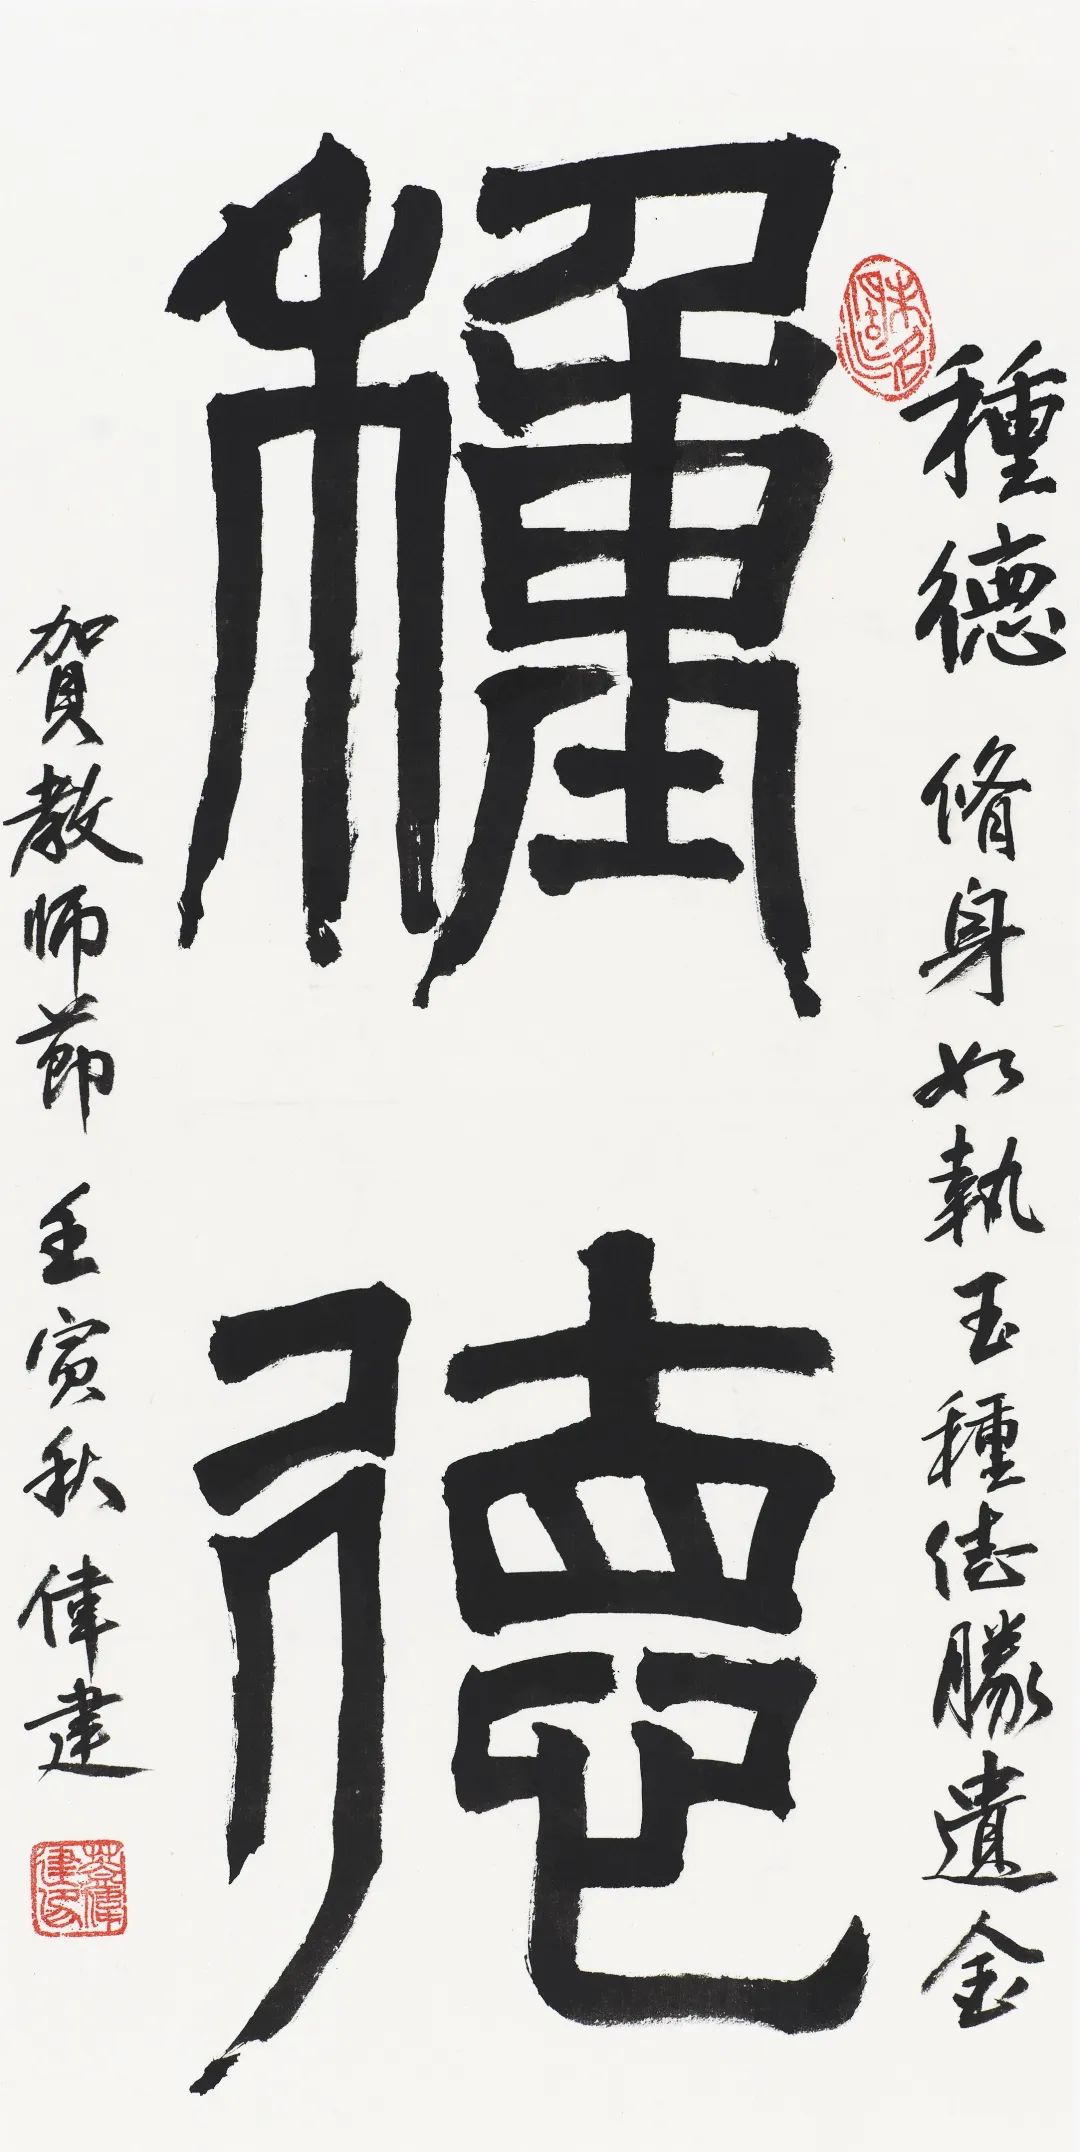 種德 脩身如執玉種德勝遺金
種德
賀教師節 壬寅秋 偉建